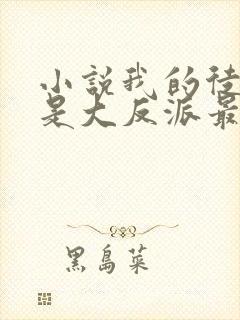 小說我的徒
是大反派最
黑島菜